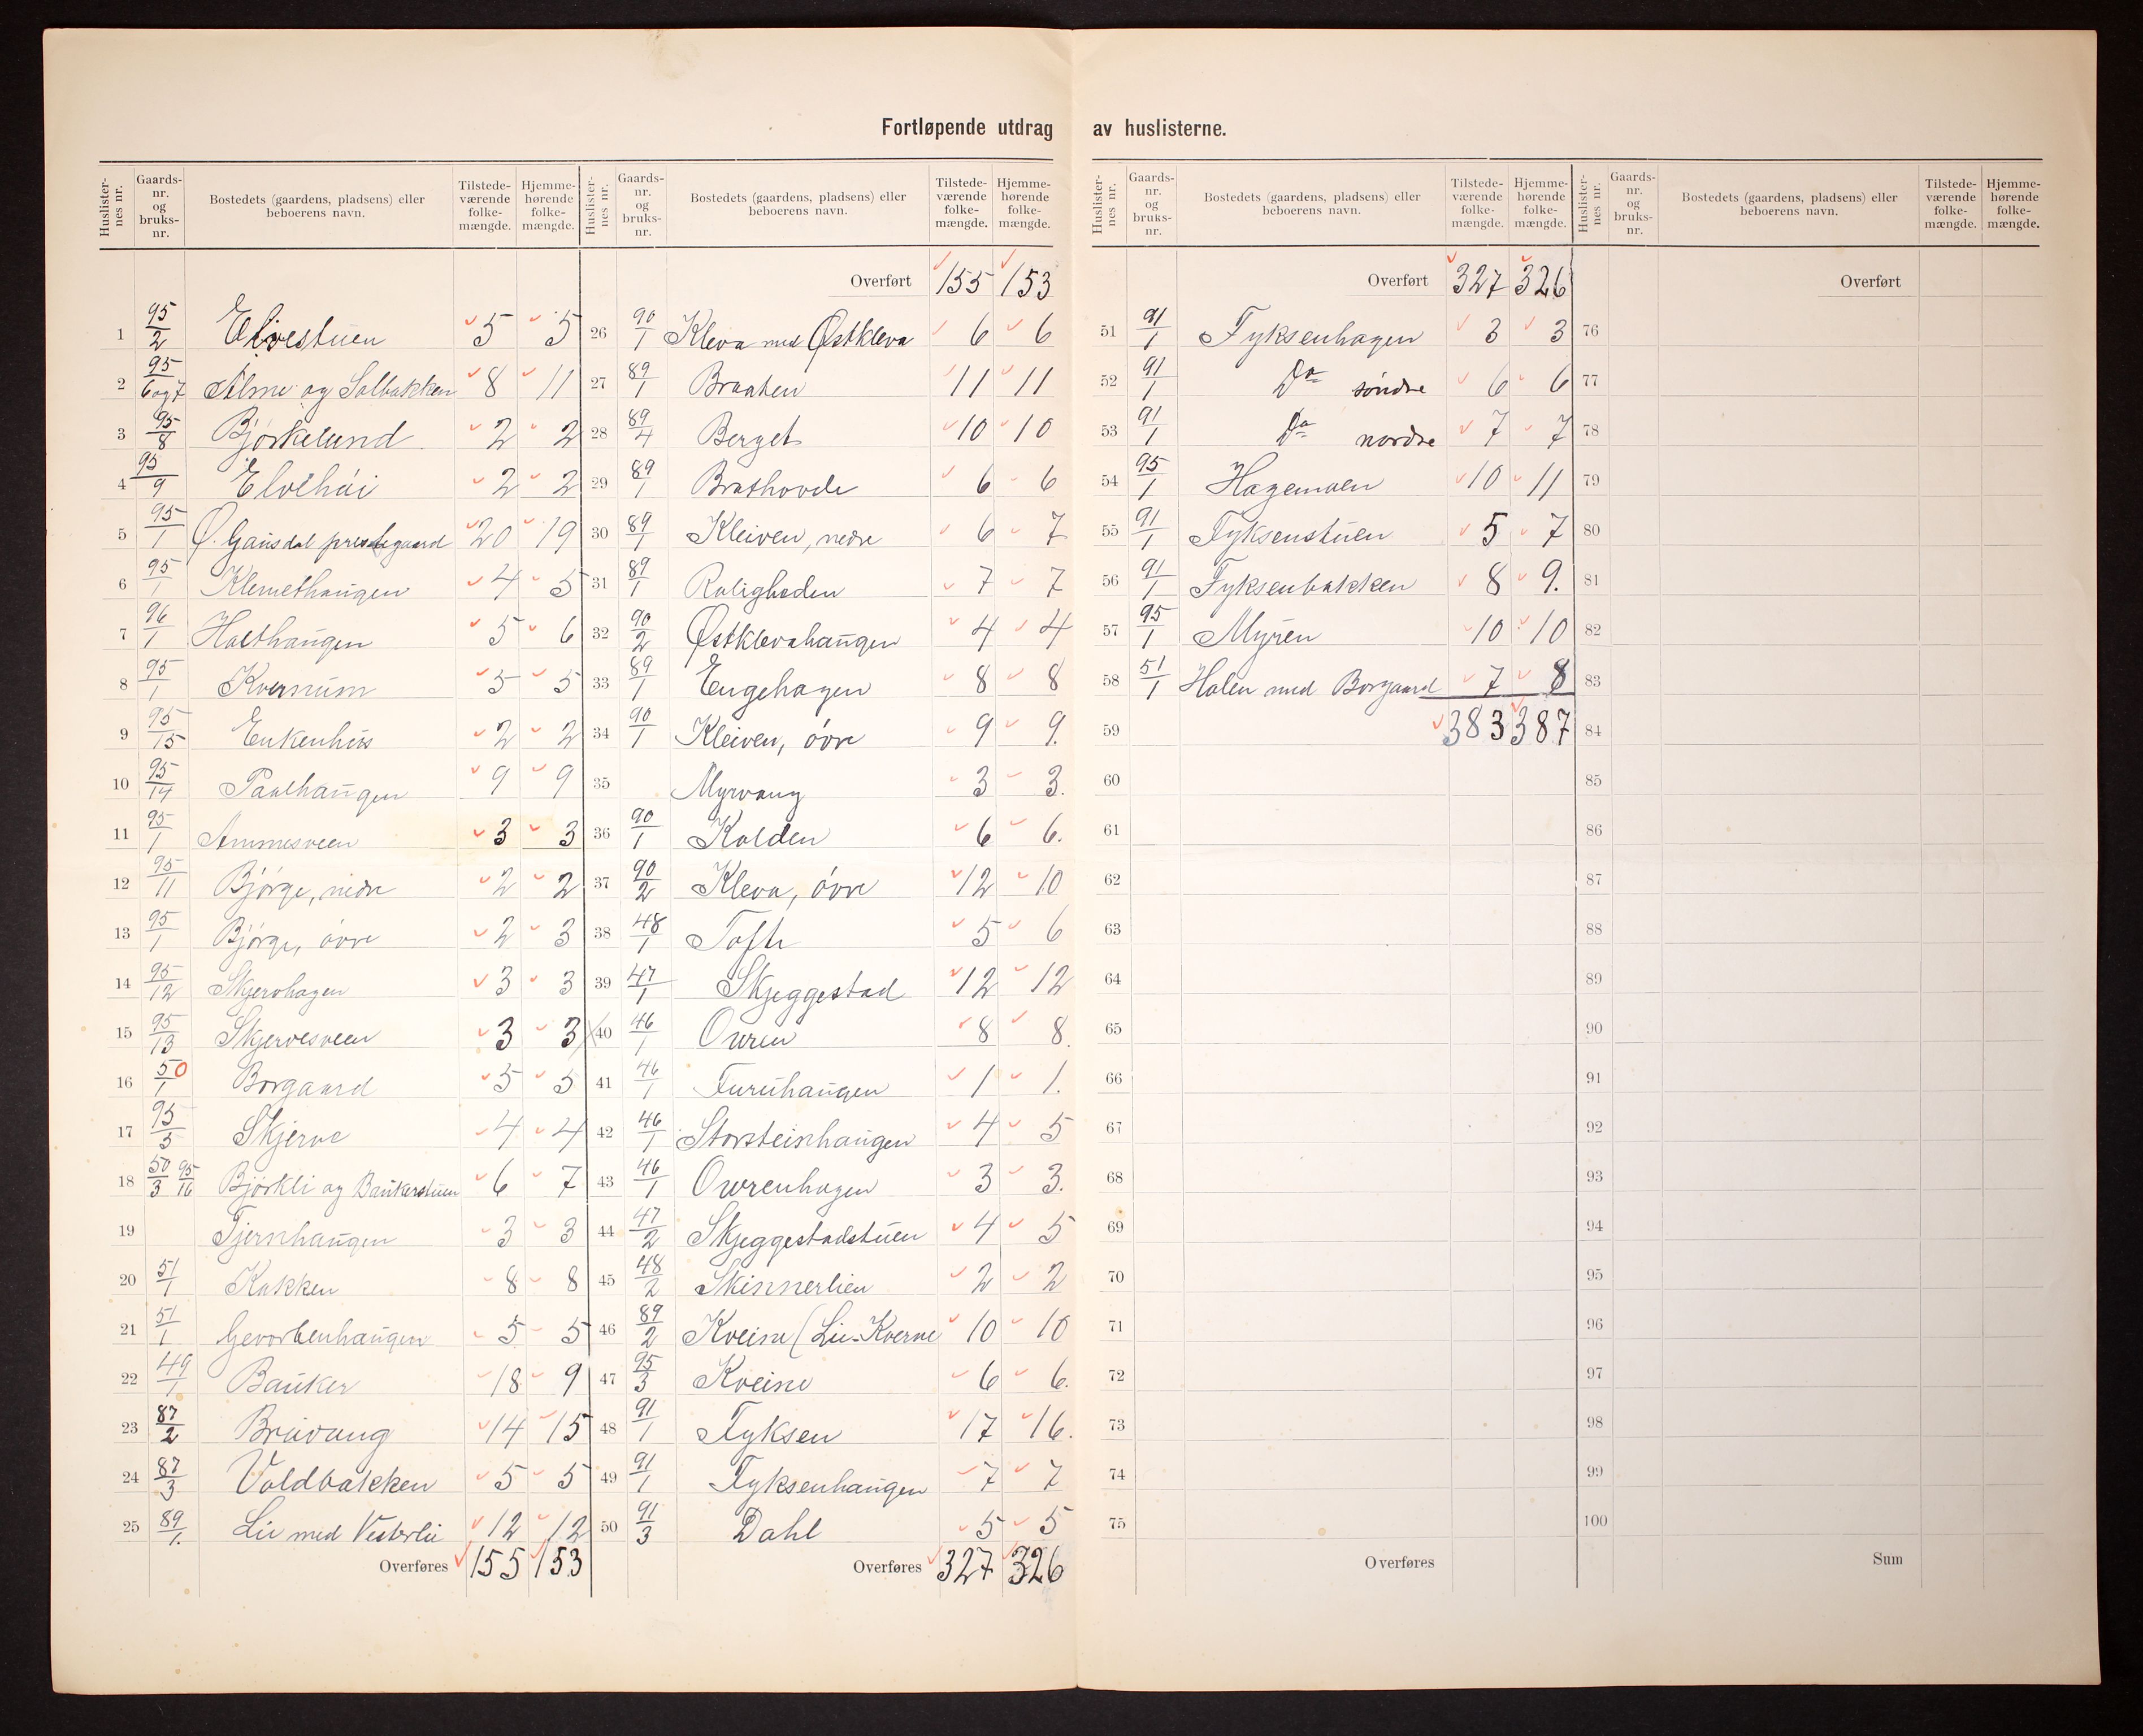 Fortløpende utdrag av huslisterne.
Huslisternes nr. Gaardsnr. og bruksnr. Bostedets (gaardens, pladsens) eller beboerens navn. Tilstedeværende folkemængde. Hjemmehørende folkemængde.
1 95/2 Elvestuen 5 5
2 95/6og7 Alme og Solbakken 8 11
3 95/8 Bjørkelund 2 2
4 95/9 Elvehøi 2 2
5 95/1 Ø. Gausdal prestegaard 20 19
6 95/1 Klemethaugen 4 5
7 96/1 Holthaugen 5 6
8 95/1 Kvernum 5 5
9 95/15 Enkenhus 2 2
10 95/14 Paalhaugen 9 9
11 95/1 Ammesveen 3 3
12 95/11 Bjørge, nedre 2 2
13 95/1 Bjørge, øvre 2 3
14 95/12 Skjervhagen 3 3
15 95/13 Skjervesveen 3 3
16 50/1 Borgaard 5 5
17 95/5 Skjerve 4 4
18 50/3 95/16 Bjørkli og Baukerstuen 6 7
19 Tjernhaugen 3 3
20 51/1 Kakken 8 8
21 51/1 Gevorbenhaugen 5 5
22 49/1 Bauker 18 9
23 87/2 Bruvang 14 15
24 87/3 Voldbakken 5 5
25 89/1. Lie med Vesterlie 12 12
Overføres 155 153
Huslisternes nr. Gaardsnr. og bruksnr. Bostedets (gaardens, pladsens) eller beboerens navn. Tilstedeværende folkemængde. Hjemmehørende folkemængde.
Overført 155 153
26 90/1 Kleva med Østkleva 6 6
27 89/1 Braaten 11 11
28 89/4 Berget 10 10
29 89/1 Brathovde 6 6
30 89/1 Kleiven, nedre 6 7
31 89/1 Roligheden 7 7
32 90/2 Østklevahaugen 4 4
33 89/1 Engehagen 8 8
34 90/1 Kleiven, øvre 9 9.
35 Myrvang 3 3.
36 90/1 Kolden 6 6.
37 90/2 Kleva, øvre 12 10
38 48/1 Toft 5 6
39 47/1 Skjeggestad 12 12
40 46/1 Owren 8 8.
41 46/1 Furuhaugen 1 1.
42 46/1 Storsteinhaugen 4 5
43 46/1 Owrenhagen 3 3.
44 47/2 Skjeggestadstuen 4 5
45 48/2 Skinnerlien 2 2
46 89/2 Kveine (Lie-Kverne 10 10
47 95/3 Kveine 6 6.
48 91/1 Fyksen 17 16.
49 91/1 Fyksenhaugen 7 7
50 91/3 Dahl 5 5
Overføres 327 326
Huslisternes nr. Gaardsnr. og bruksnr. Bostedets (gaardens, pladsens) eller beboerens navn. Tilstedeværende folkemængde. Hjemmehørende folkemængde.
Overført 327 326
51 91/1 Fyksenhagen 3 3
52 91/1 Do søndre 6 6
53 91/1 Do nordre 7 7
54 95/1 Hagemoen 10 11
55 91/1 Fyksenstuen 5 7
56 91/1 Fyksenbakken 8 9.
57 95/1 Myren 10 10
58 51/1 Holen med Borgaard 7 8
59 383 387
60
61
62
63
64
65
66
67
68
69
70
71
72
73
74
75
Overføres
Huslisternes nr. Gaardsnr. og bruksnr. Bostedets (gaardens, pladsens) eller beboerens navn. Tilstedeværende folkemængde. Hjemmehørende folkemængde.
Overført
76
77
78
79
80
81
82
83
84
85
86
87
88
89
90
91
92
93
94
95
96
97
98
99
100
Sum